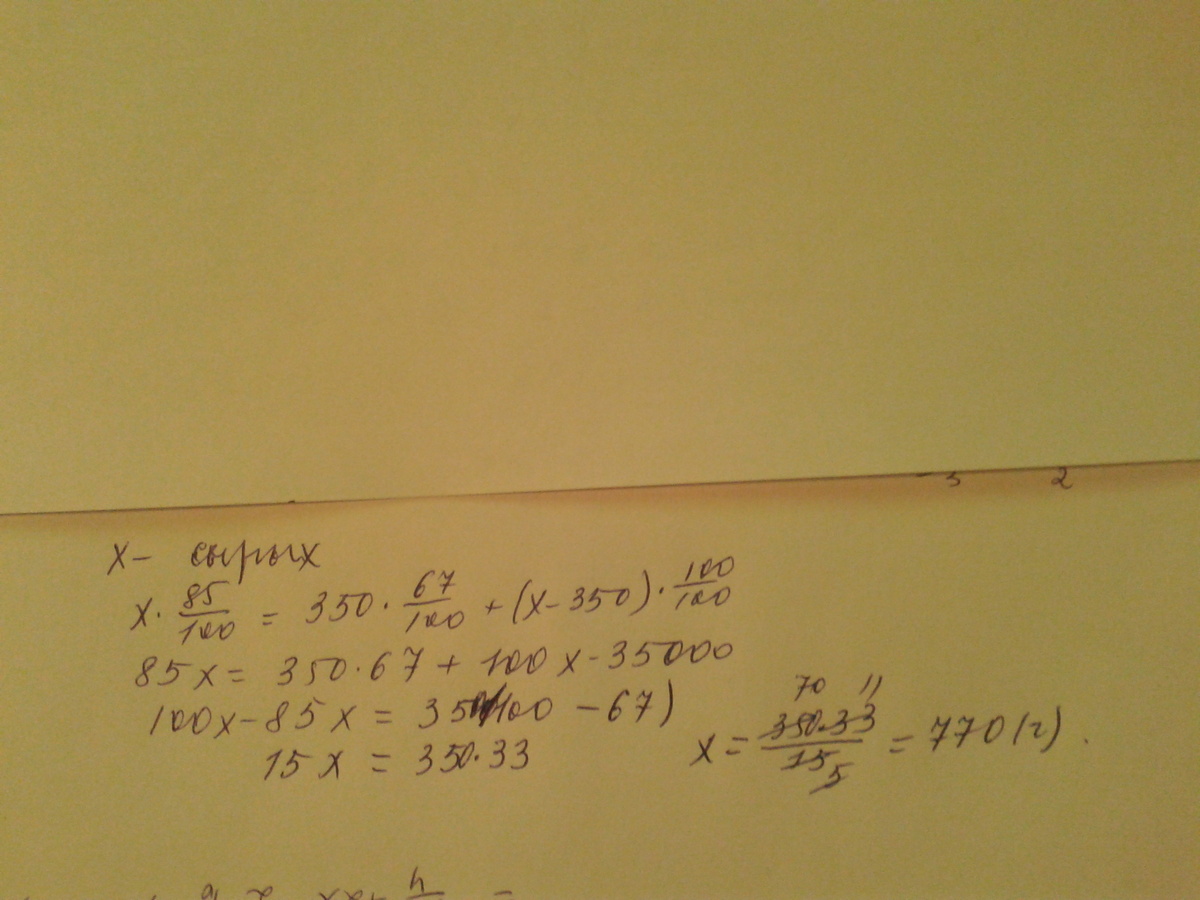 3 2
x - сырых
x · 85/100 = 350 · 67/100 + (x - 350) · 100/100
85x = 350·67 + 100x - 35000
100x - 85x = 350(100 - 67)
15x = 350·33
x = 350·33/15 = 770 (г).
70 11
5